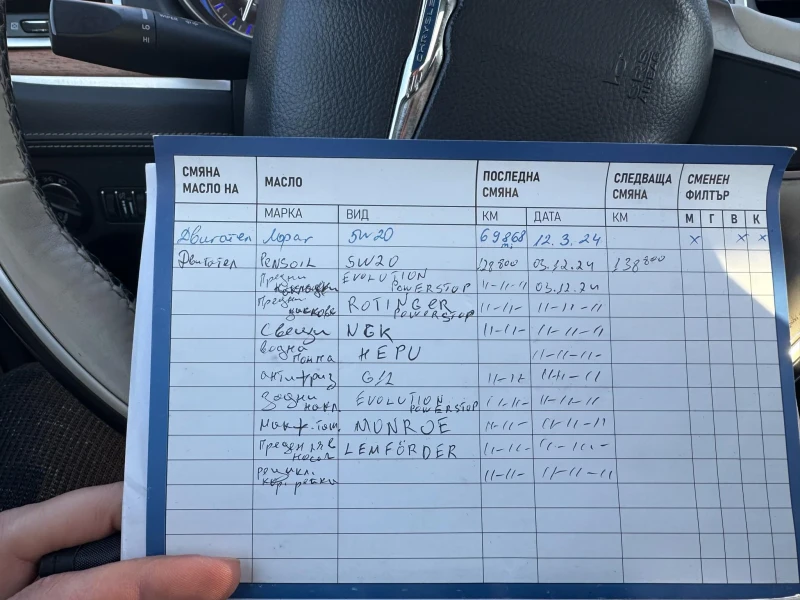 LO
HI
СМЯНА МАСЛО НА МАСЛО ПОСЛЕДНА СМЯНА СЛЕДВАЩА СМЯНА СМЕНЕН ФИЛТЪР
МАРКА ВИД КМ ДАТА КМ М Г В К
Двигател Мораг 5W20 69868 mi 12.3.24 x x x
Двигател PENSOIL 5W20 128800 03.12.24 138800
Предни накладки EVOLUTION POWERSTOP 11-11-11 03.12.24
Предни дискове ROTINGER POWERSTOP 11-11- 11-11-11
Свещи NGK 11-11- 11-11-11
Водна помпа HEPU 11-11-
антифриз G12 11-11 11-11-11
Задни накл. EVOLUTION POWERSTOP 11-11- 11-11-11
Макф. там. MONROE 11-11- 11-11-11
Преден ляв носач LEMFÖRDER 11-11- 11-11-
рецикл. 11-11- 11-11-11